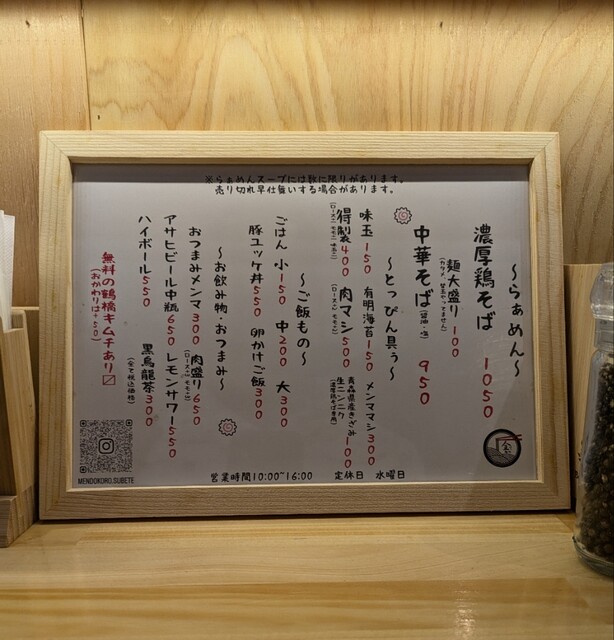 ※らぁめんスープには数に限りがあります。
売り切れ早仕舞いする場合があります。
～らぁめん～
濃厚鶏そば 1050
麺大盛り 100
中華そば(醤油・塩) 950
～とっぴん具ぅ～
味玉150 有明海苔150 メンママシ300
得製400 肉マシ500 青森県産きざみ生ニンニク100
(濃厚鶏そば専用)
～ご飯もの～
ごはん 小150 中200 大300
豚ユッケ丼550 卵かけご飯300
～お飲み物・おつまみ～
おつまみメンマ300 肉盛り650
アサヒビール中瓶650 レモンサワー550
ハイボール550 黒烏龍茶300
(全て税込価格)
無料の鶴橋キムチあり〼
(おかわりは+50)
MENDOKORO.SUBETE
営業時間10:00~16:00 定休日 水曜日